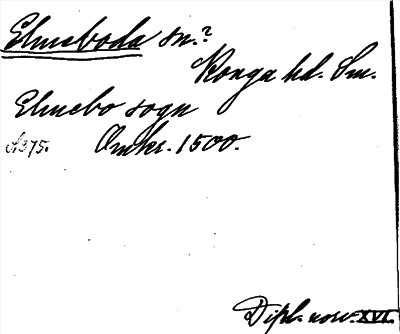 Elmeboda sn.?
Konga hd. Sm.
Elmebo sogn
A375. Omkr. 1500.
Dipl. norv. XVI.